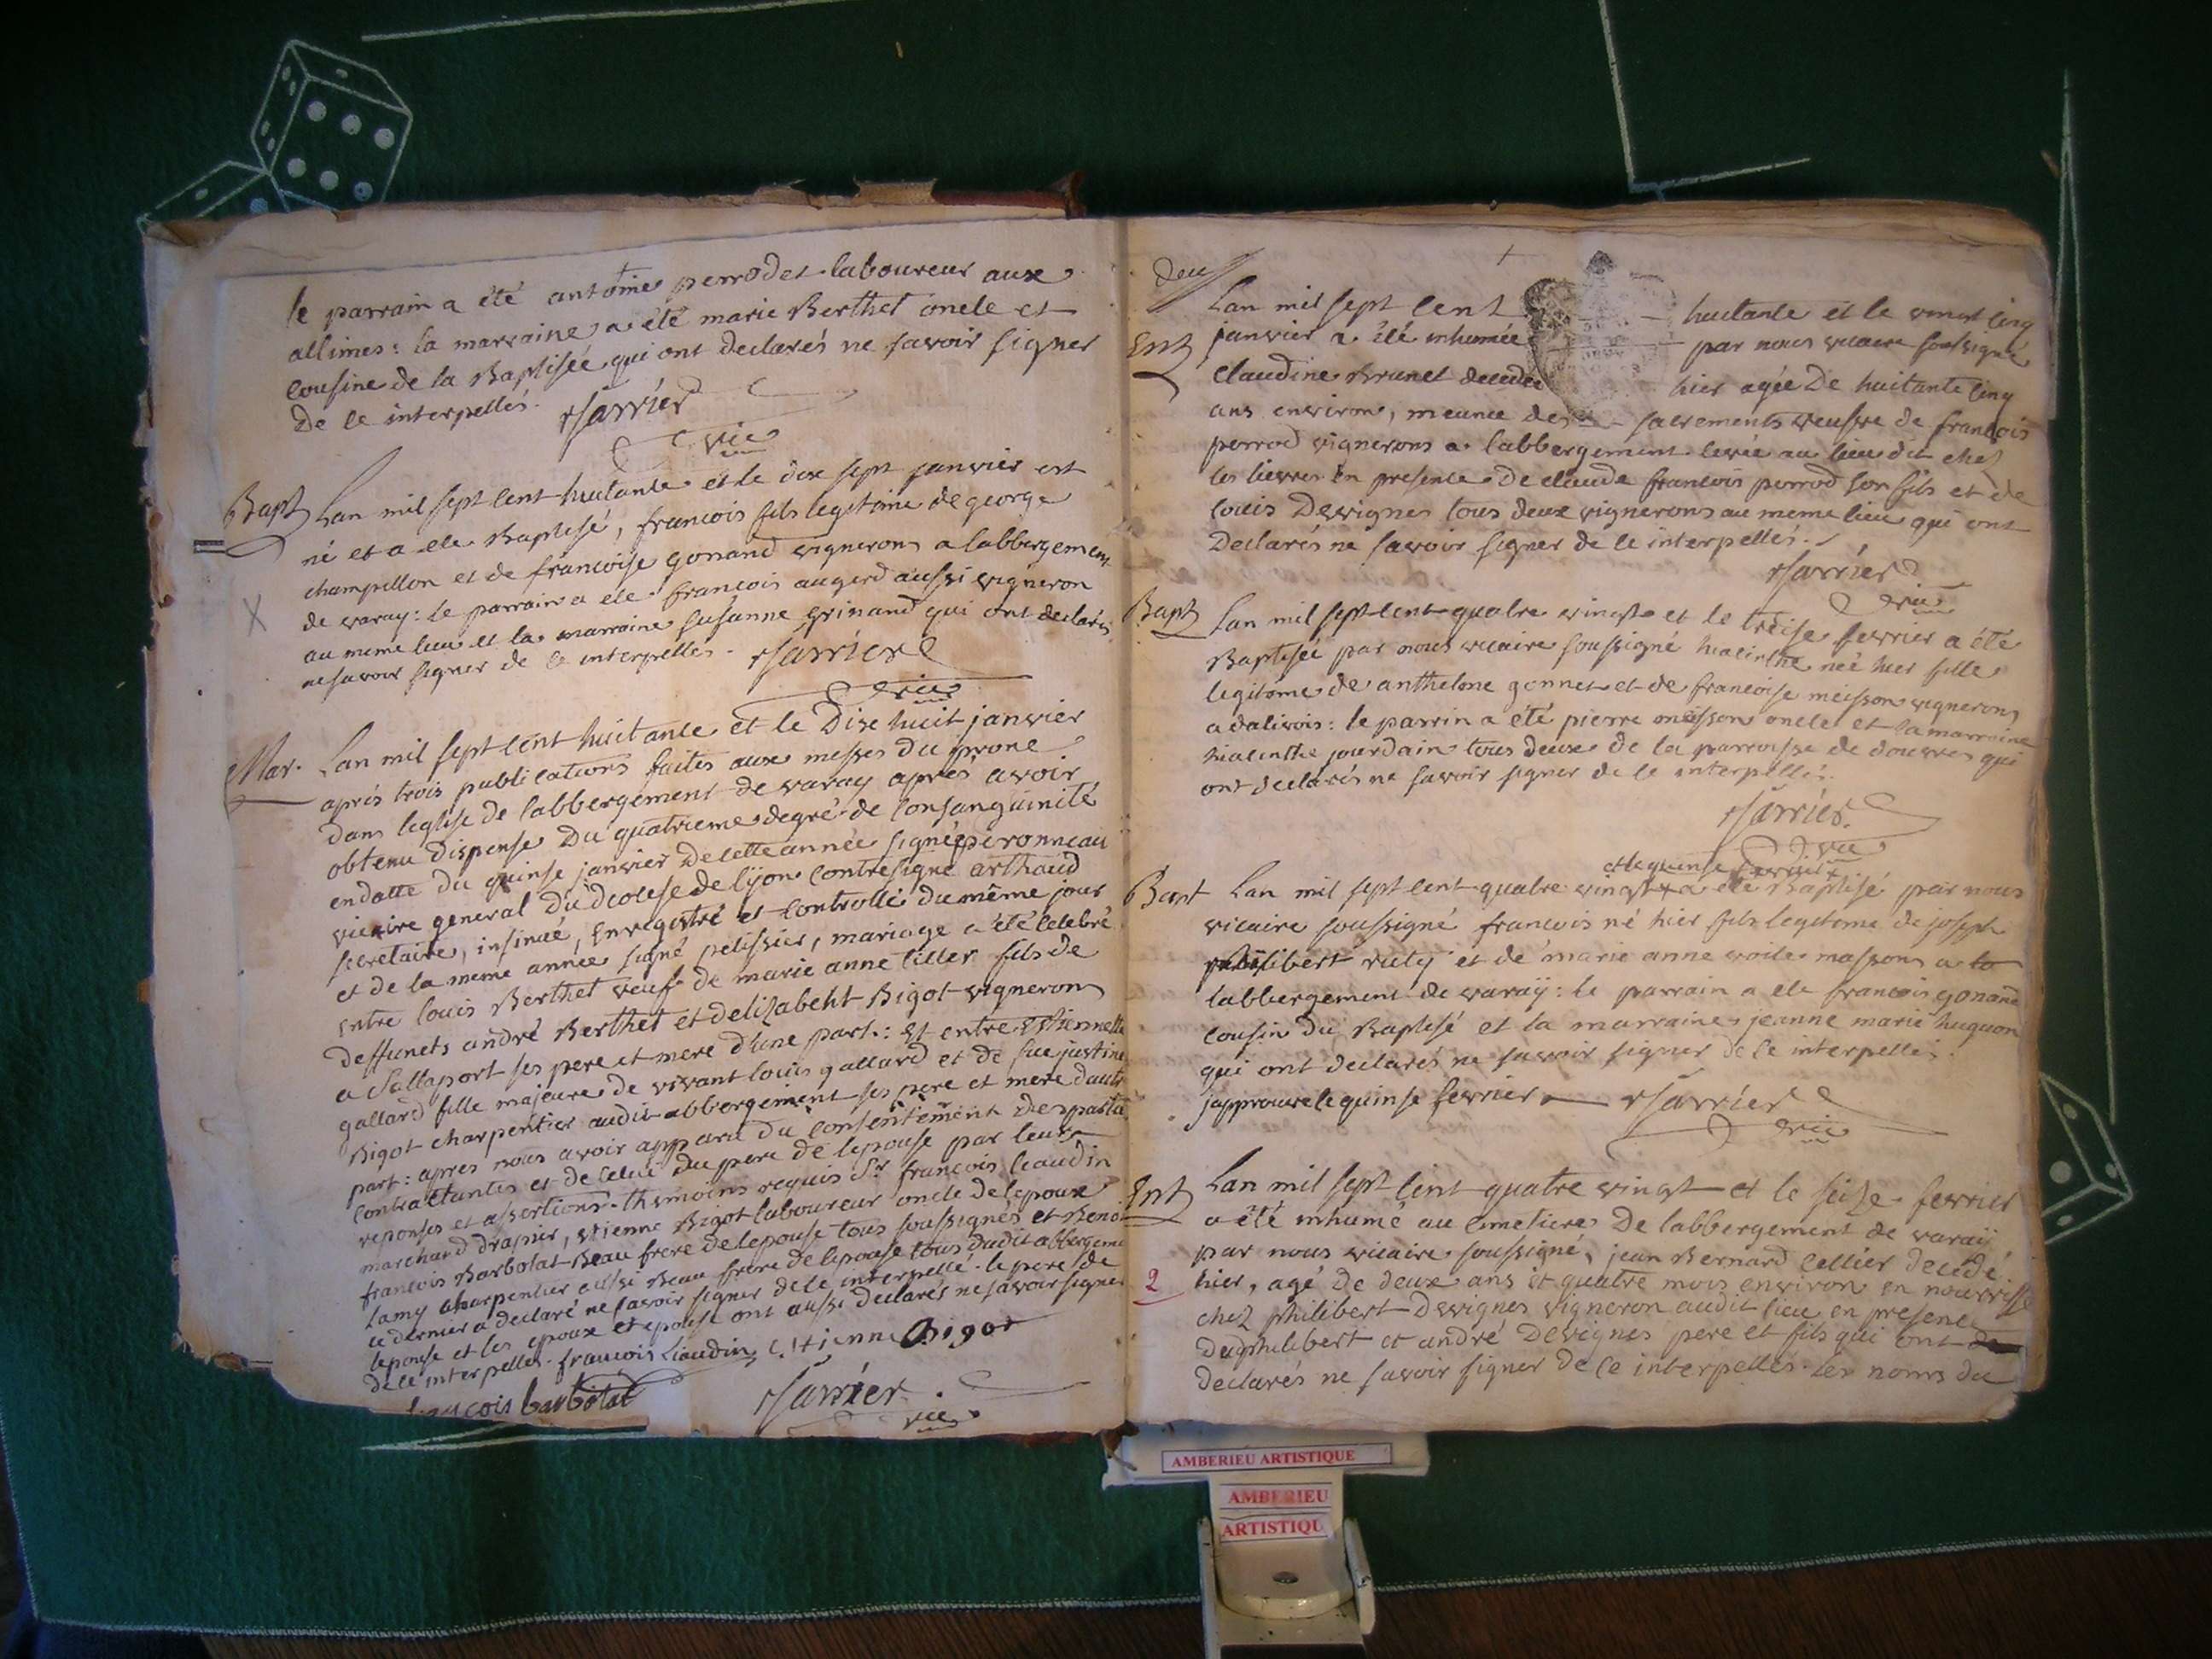 le parrain a été antoine perrodet laboureur aux
allimes: la marraine a été marie Berthet oncle et
cousine de la Baptisée qui ont declarés ne savoir signer
de ce interpellés.
vic
Bapt Lan mil sept cent huitante et le dix sept janvier est
né et a ete Baptisé, francois fils legitime de george
champillon et de francoise gonand vignerons a labbergement
de varay: le parrain a ete francois augerd aussi vigneron
au meme lieu et la marraine susanne grinand qui ont declarés
ne savoir signer de ce interpellés.
vic
Mar. Lan mil sept cent huitante et le Dixe huit janvier
aprés trois publications faites aux messes du prone
dans leglise de labbergement de varay aprés avoir
obtenu dispense Du quatrieme degré de Consanguinité
en datte du quinse janvier de cette année signée peronneau
vicaire general du diocese de lyon contresigné arthaud
secretaire, insinué, Enregistré et controllé du même jour
et de la meme année signé pelissier, mariage a été celebré
entre louis Berthet veuf de marie anne fils de
deffunets andré Berthet et delizabeht Bigot vignerons
a ses pere et mere d'une part: Et entre Estiennette
gallard fille majeure de vivant louis gallard et de justine
Bigot charpentier audit abbergement ses pere et mere dautre
part: apres nous avoir apparu du consentement des parties
contractantes et de celui du pere de lepouse par leurs
reponses et assertions. themoins requis Sr francois liaudin
marchand drapier, etienne Bigot laboureur oncle de lepoux
francois Barbolat Beau frere de lepouse tous soussignés et Benoi
Lamy charpentier aussi Beau frere de lepouse tous dudit abbergeme
ce dernier a declaré ne savoir signer de ce interpellé. le pere de
lepouse et les epoux et epouse ont aussi declarés ne savoir signer
de ce interpellés. francois Liaudin Etienne Bigot
francois barbolat
vic
deux
Lan mil sept cent huitante et le vingt cinq
Ent janvier a été inhumée par nous vicaire soussigné
Claudine Brunet decedée hier agée De huitante cinq
ans environ, meunie des sacrements veufve de francois
perrod vignerons a labbergement au lieu dit chez
les lievres En presence de claude francois perrod son fils et de
louis Devignes tous deux vignerons au meme lieu qui ont
Declarés ne savoir signer de ce interpellés.
vic
Bapt Lan mil sept cent quatre vingt et le treise fevrier a été
Baptisée par nous vicaire soussigné hiacinthe née hier fille
legitime de anthelme gonnet et de francoise meisson vignerons
a dalivois: le parrin a été pierre meisson oncle et la marraine
hiacinthe jourdain tous deux de la parroisse de douvres qui
ont declarés ne savoir signer de ce interpellés.
vic
et le quinse fevrier
Bapt Lan mil sept cent quatre vingt a ete Baptisé par nous
vicaire soussigné francois né hier fils legitime de joseph
philibert et de marie anne massons a la
labbergement de varaÿ: le parrain a ete francois gonand
cousin du Baptisé et la marraine jeanne marie hugon
qui ont declarés ne savoir signer de ce interpellés.
japprouve le quinse fevrier
vic
Ent Lan mil sept cent quatre vingt et le seize fevrier
a été inhumé au cimetiere De labbergement de varaÿ
par nous vicaire soussigné, jean Bernard cellier decedé
2 hier, agé De deux ans et quatre mois environ en nourrisse
chez philibert Devignes vigneron audit lieu en presence
du philibert et andré Devignes pere et fils qui ont
declarés ne savoir signer de ce interpellés. Les noms du
AMBERIEU ARTISTIQUE
AMBERIEU
ARTISTIQU